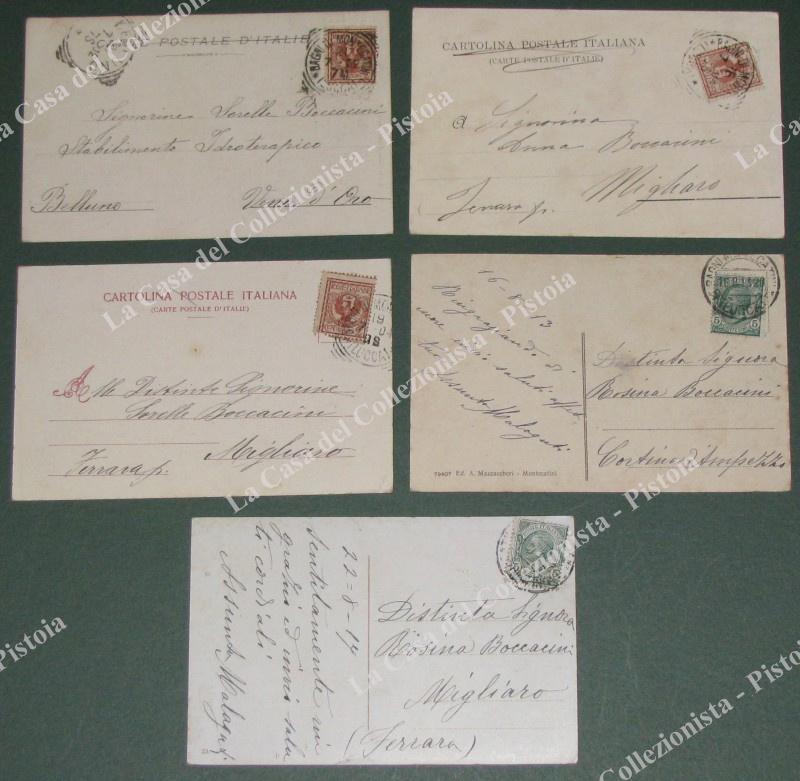 POSTALE D'ITALIE
Signorine Sorelle Boccaccini
Stabilimento Idroterapico
Belluno Vena d'Oro
CARTOLINA POSTALE ITALIANA
(CARTE POSTALE D'ITALIE)
a Signorina
Anna Boccacini
Migliaro
Ferrara p.
CARTOLINA POSTALE ITALIANA
(CARTE POSTALE D'ITALIE)
Alle Distinte Signorine
Sorelle Boccaccini
Migliaro
Ferrara p.
16-8-13
Ringraziando di
cuore invio saluti affet
Assunta Malaguti
Distinta Signora
Rosina Boccaccini
Cortina d'Ampezzo
79407 Ed. A. Mazzaccheri - Montecatini
22-8-14
Sentitamente rin
grazio ed invio salu
ti cordiali
Assunta Malaguti
Distinta Signora
Rosina Boccacini
Migliaro
(Ferrara)
La Casa del Collezionista - Pistoia